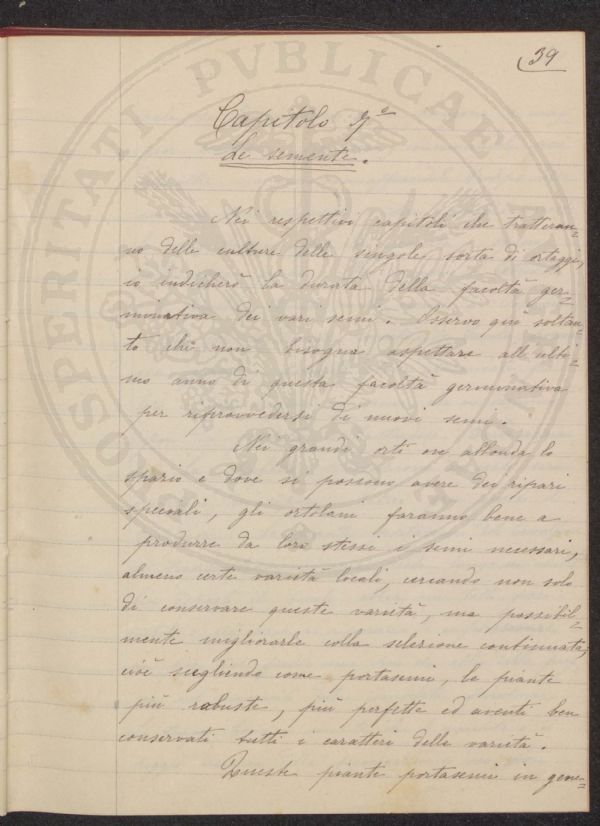 39
Capitolo 7º
Le semente.
Nei respettivi capitoli che tratteran=
no delle culture delle singole sorta di ortaggi,
io indicherò la durata della facoltà ger=
minativa dei vari semi. Osservo quì soltan=
to che non bisogna aspettare all'ulti=
mo anno di questa facoltà germinativa
per riprovvedersi di nuovi semi.
Nei grandi orti ove abbonda lo
spazio e dove si possono avere dei ripari
speciali, gli ortolani faranno bene a
produrre da loro stessi i semi necessari,
almeno certe varietà locali, cercando non solo
di conservare queste varietà, ma possibil=
mente migliorarle colla selezione continuata,
cioè scegliendo come portasemi, le piante
più robuste, più perfette ed aventi ben
conservati tutti i caratteri della varietà.
Queste piante portasemi in gene=
PROSPERITATI PVBLICAE